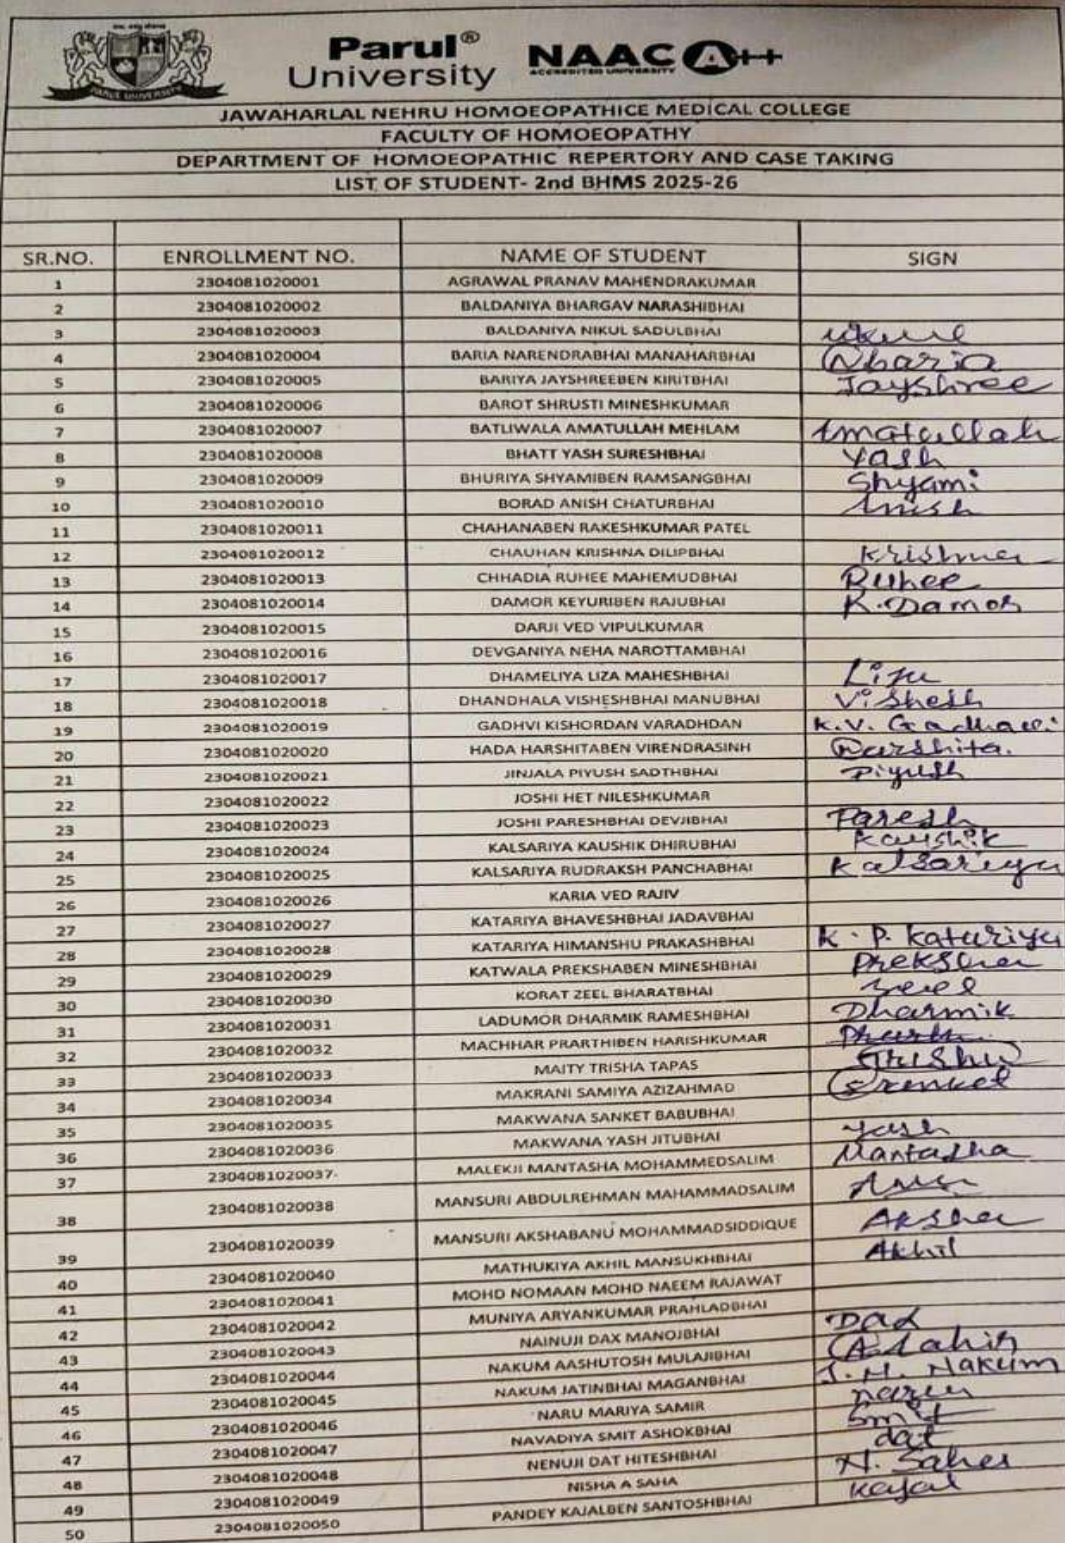 Parul®
University
NAAC A++
ACCREDITED UNIVERSITY
PARUL UNIVERSITY
JAWAHARLAL NEHRU HOMOEOPATHICE MEDICAL COLLEGE
FACULTY OF HOMOEOPATHY
DEPARTMENT OF HOMOEOPATHIC REPERTORY AND CASE TAKING
LIST OF STUDENT- 2nd BHMS 2025-26
SR.NO. ENROLLMENT NO. NAME OF STUDENT SIGN
1 2304081020001 AGRAWAL PRANAV MAHENDRAKUMAR
2 2304081020002 BALDANIYA BHARGAV NARASHIBHAI
3 2304081020003 BALDANIYA NIKUL SADULBHAI
4 2304081020004 BARIA NARENDRABHAI MANAHARBHAI Nbaria
5 2304081020005 BARIYA JAYSHREEBEN KIRITBHAI Jayshree
6 2304081020006 BAROT SHRUSTI MINESHKUMAR
7 2304081020007 BATLIWALA AMATULLAH MEHLAM Amatullah
8 2304081020008 BHATT YASH SURESHBHAI Yash
9 2304081020009 BHURIYA SHYAMIBEN RAMSANGBHAI Shyami
10 2304081020010 BORAD ANISH CHATURBHAI Anish
11 2304081020011 CHAHANABEN RAKESHKUMAR PATEL
12 2304081020012 CHAUHAN KRISHNA DILIPBHAI Krishna
13 2304081020013 CHHADIA RUHEE MAHEMUDBHAI Ruhee
14 2304081020014 DAMOR KEYURIBEN RAJUBHAI K.Damor
15 2304081020015 DARJI VED VIPULKUMAR
16 2304081020016 DEVGANIYA NEHA NAROTTAMBHAI
17 2304081020017 DHAMELIYA LIZA MAHESHBHAI Liza
18 2304081020018 DHANDHALA VISHESHBHAI MANUBHAI Vishesh
19 2304081020019 GADHVI KISHORDAN VARADHDAN K.V. Gadhavi
20 2304081020020 HADA HARSHITABEN VIRENDRASINH Harshita.
21 2304081020021 JINJALA PIYUSH SADTHBHAI Piyush
22 2304081020022 JOSHI HET NILESHKUMAR
23 2304081020023 JOSHI PARESHBHAI DEVJIBHAI Paresh
24 2304081020024 KALSARIYA KAUSHIK DHIRUBHAI Kaushik
25 2304081020025 KALSARIYA RUDRAKSH PANCHABHAI Kalsariya
26 2304081020026 KARIA VED RAJIV
27 2304081020027 KATARIYA BHAVESHBHAI JADAVBHAI
28 2304081020028 KATARIYA HIMANSHU PRAKASHBHAI K.P. Katariya
29 2304081020029 KATWALA PREKSHABEN MINESHBHAI Preksha
30 2304081020030 KORAT ZEEL BHARATBHAI zeel
31 2304081020031 LADUMOR DHARMIK RAMESHBHAI Dharmik
32 2304081020032 MACHHAR PRARTHIBEN HARISHKUMAR
33 2304081020033 MAITY TRISHA TAPAS Trisha
34 2304081020034 MAKRANI SAMIYA AZIZAHMAD
35 2304081020035 MAKWANA SANKET BABUBHAI Sanket
36 2304081020036 MAKWANA YASH JITUBHAI yash
37 2304081020037 MALEKJI MANTASHA MOHAMMEDSALIM Mantasha
38 2304081020038 MANSURI ABDULREHMAN MAHAMMADSALIM
39 2304081020039 MANSURI AKSHABANU MOHAMMADSIDDIQUE Aksha
40 2304081020040 MATHUKIYA AKHIL MANSUKHBHAI Akhil
41 2304081020041 MOHD NOMAAN MOHD NAEEM RAJAWAT
42 2304081020042 MUNIYA ARYANKUMAR PRAHLADBHAI
43 2304081020043 NAINUJI DAX MANOJBHAI Dax
44 2304081020044 NAKUM AASHUTOSH MULAJIBHAI
45 2304081020045 NAKUM JATINBHAI MAGANBHAI J.M. Nakum
46 2304081020046 NARU MARIYA SAMIR naru
47 2304081020047 NAVADIYA SMIT ASHOKBHAI Smit
48 2304081020048 NENUJI DAT HITESHBHAI dat
49 2304081020049 NISHA A SAHA N. Saha
50 2304081020050 PANDEY KAJALBEN SANTOSHBHAI Kajal